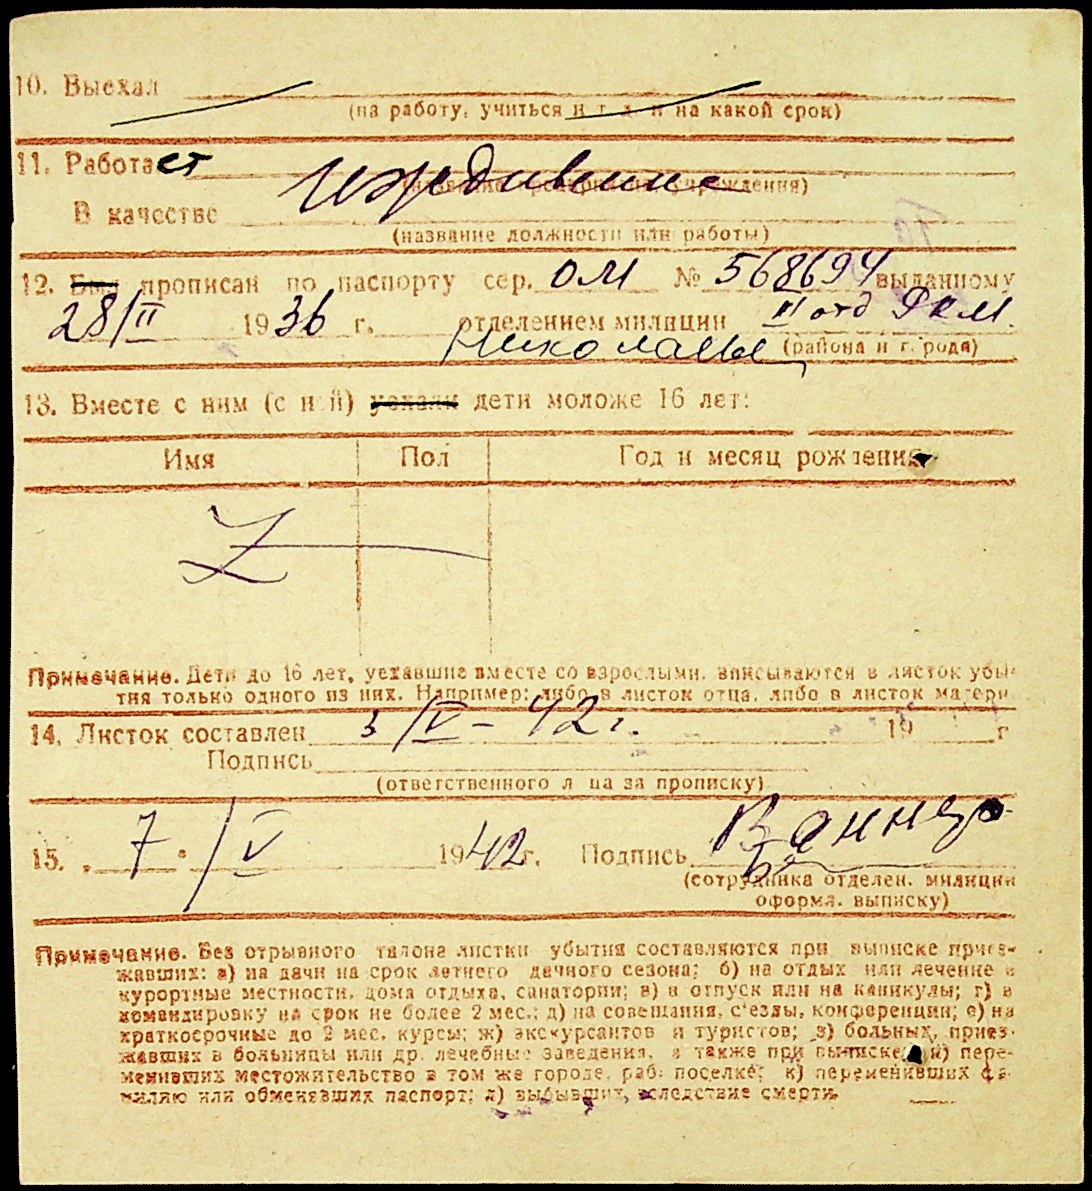 10. Выехал
(на работу, учиться и т. д. и на какой срок)
11. Работает иждивение
(название предприятия, учреждения)
В качестве
(название должности или работы)
12. Был прописан по паспорту сер. ОМ № 568694 выданному
28/II 1936 г. отделением милиции III отд РКМ.
Николаевы (района и города)
13. Вместе с ним (с ней) уехали дети моложе 16 лет:
Имя Пол Год и месяц рождения
Z
Примечание. Дети до 16 лет, уехавшие вместе со взрослыми, вписываются в листок убы-
тия только одного из них. Например: либо в листок отца, либо в листок матери
14. Листок составлен 5/V - 42 г. 19 г
Подпись
(ответственного лица за прописку)
15. „ 7 " / V 1942 г. Подпись
(сотрудника отделен. милиции
оформл. выписку)
Примечание. Без отрывного талона листки убытия составляются при выписке приез-
жавших: а) на дачи на срок летнего дачного сезона; б) на отдых или лечение в
курортные местности, дома отдыха, санатории; в) в отпуск или на каникулы; г) в
командировку на срок не более 2 мес.; д) на совещания, с'езды, конференции; е) на
краткосрочные до 2 мес. курсы; ж) экскурсантов и туристов; з) больных, приез-
жавших в больницы или др. лечебные заведения, а также при выписке: и) пере-
менивших местожительство в том же городе, раб. поселке; к) переменивших фа-
милию или обменявших паспорт; л) выбывших, вследствие смерти.